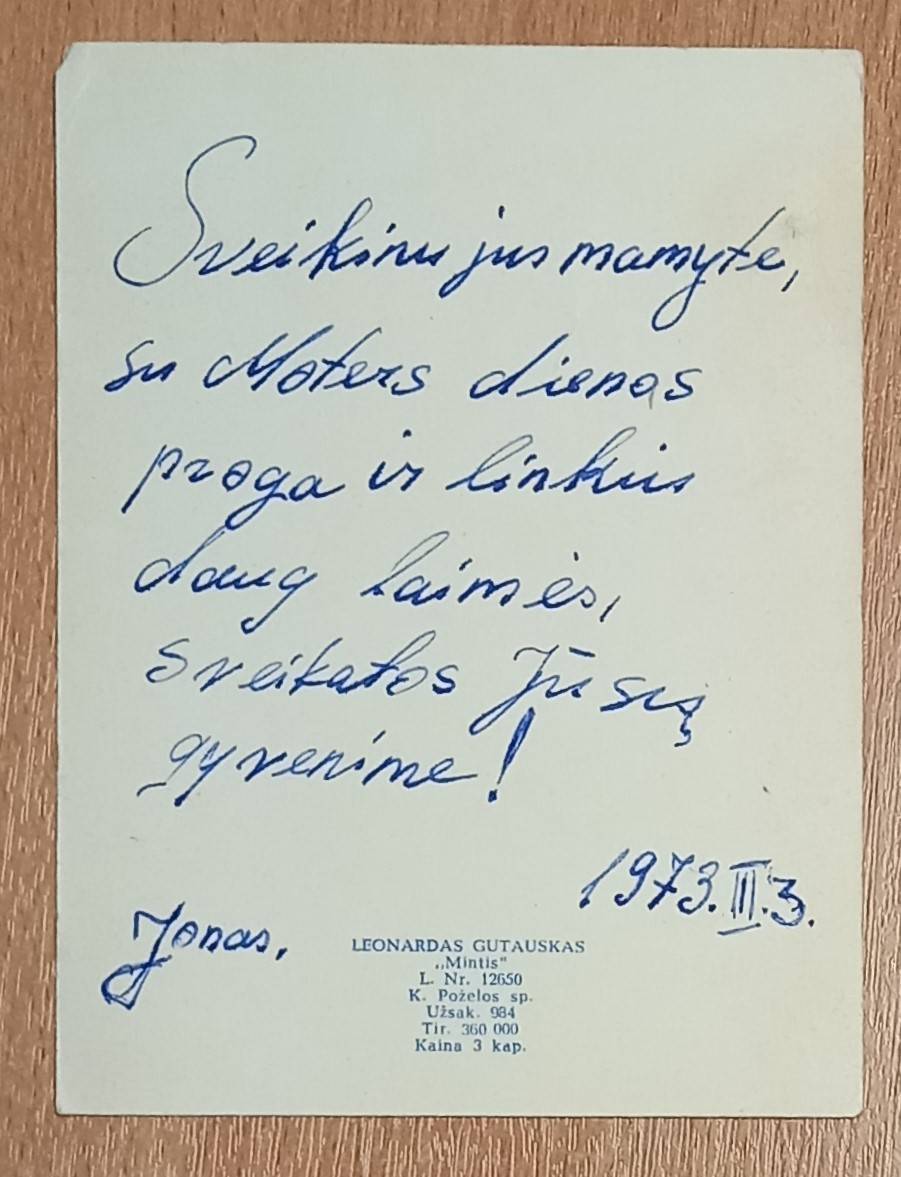 Sveikinu jus mamyte,
su Moters dienos
proga ir linkiu
daug laimės,
sveikatos Jūsų
gyvenime!
1973.III.3.
Jonas.
LEONARDAS GUTAUSKAS
„Mintis"
L. Nr. 12650
K. Poželos sp.
Užsak. 984
Tir. 360 000
Kaina 3 kap.